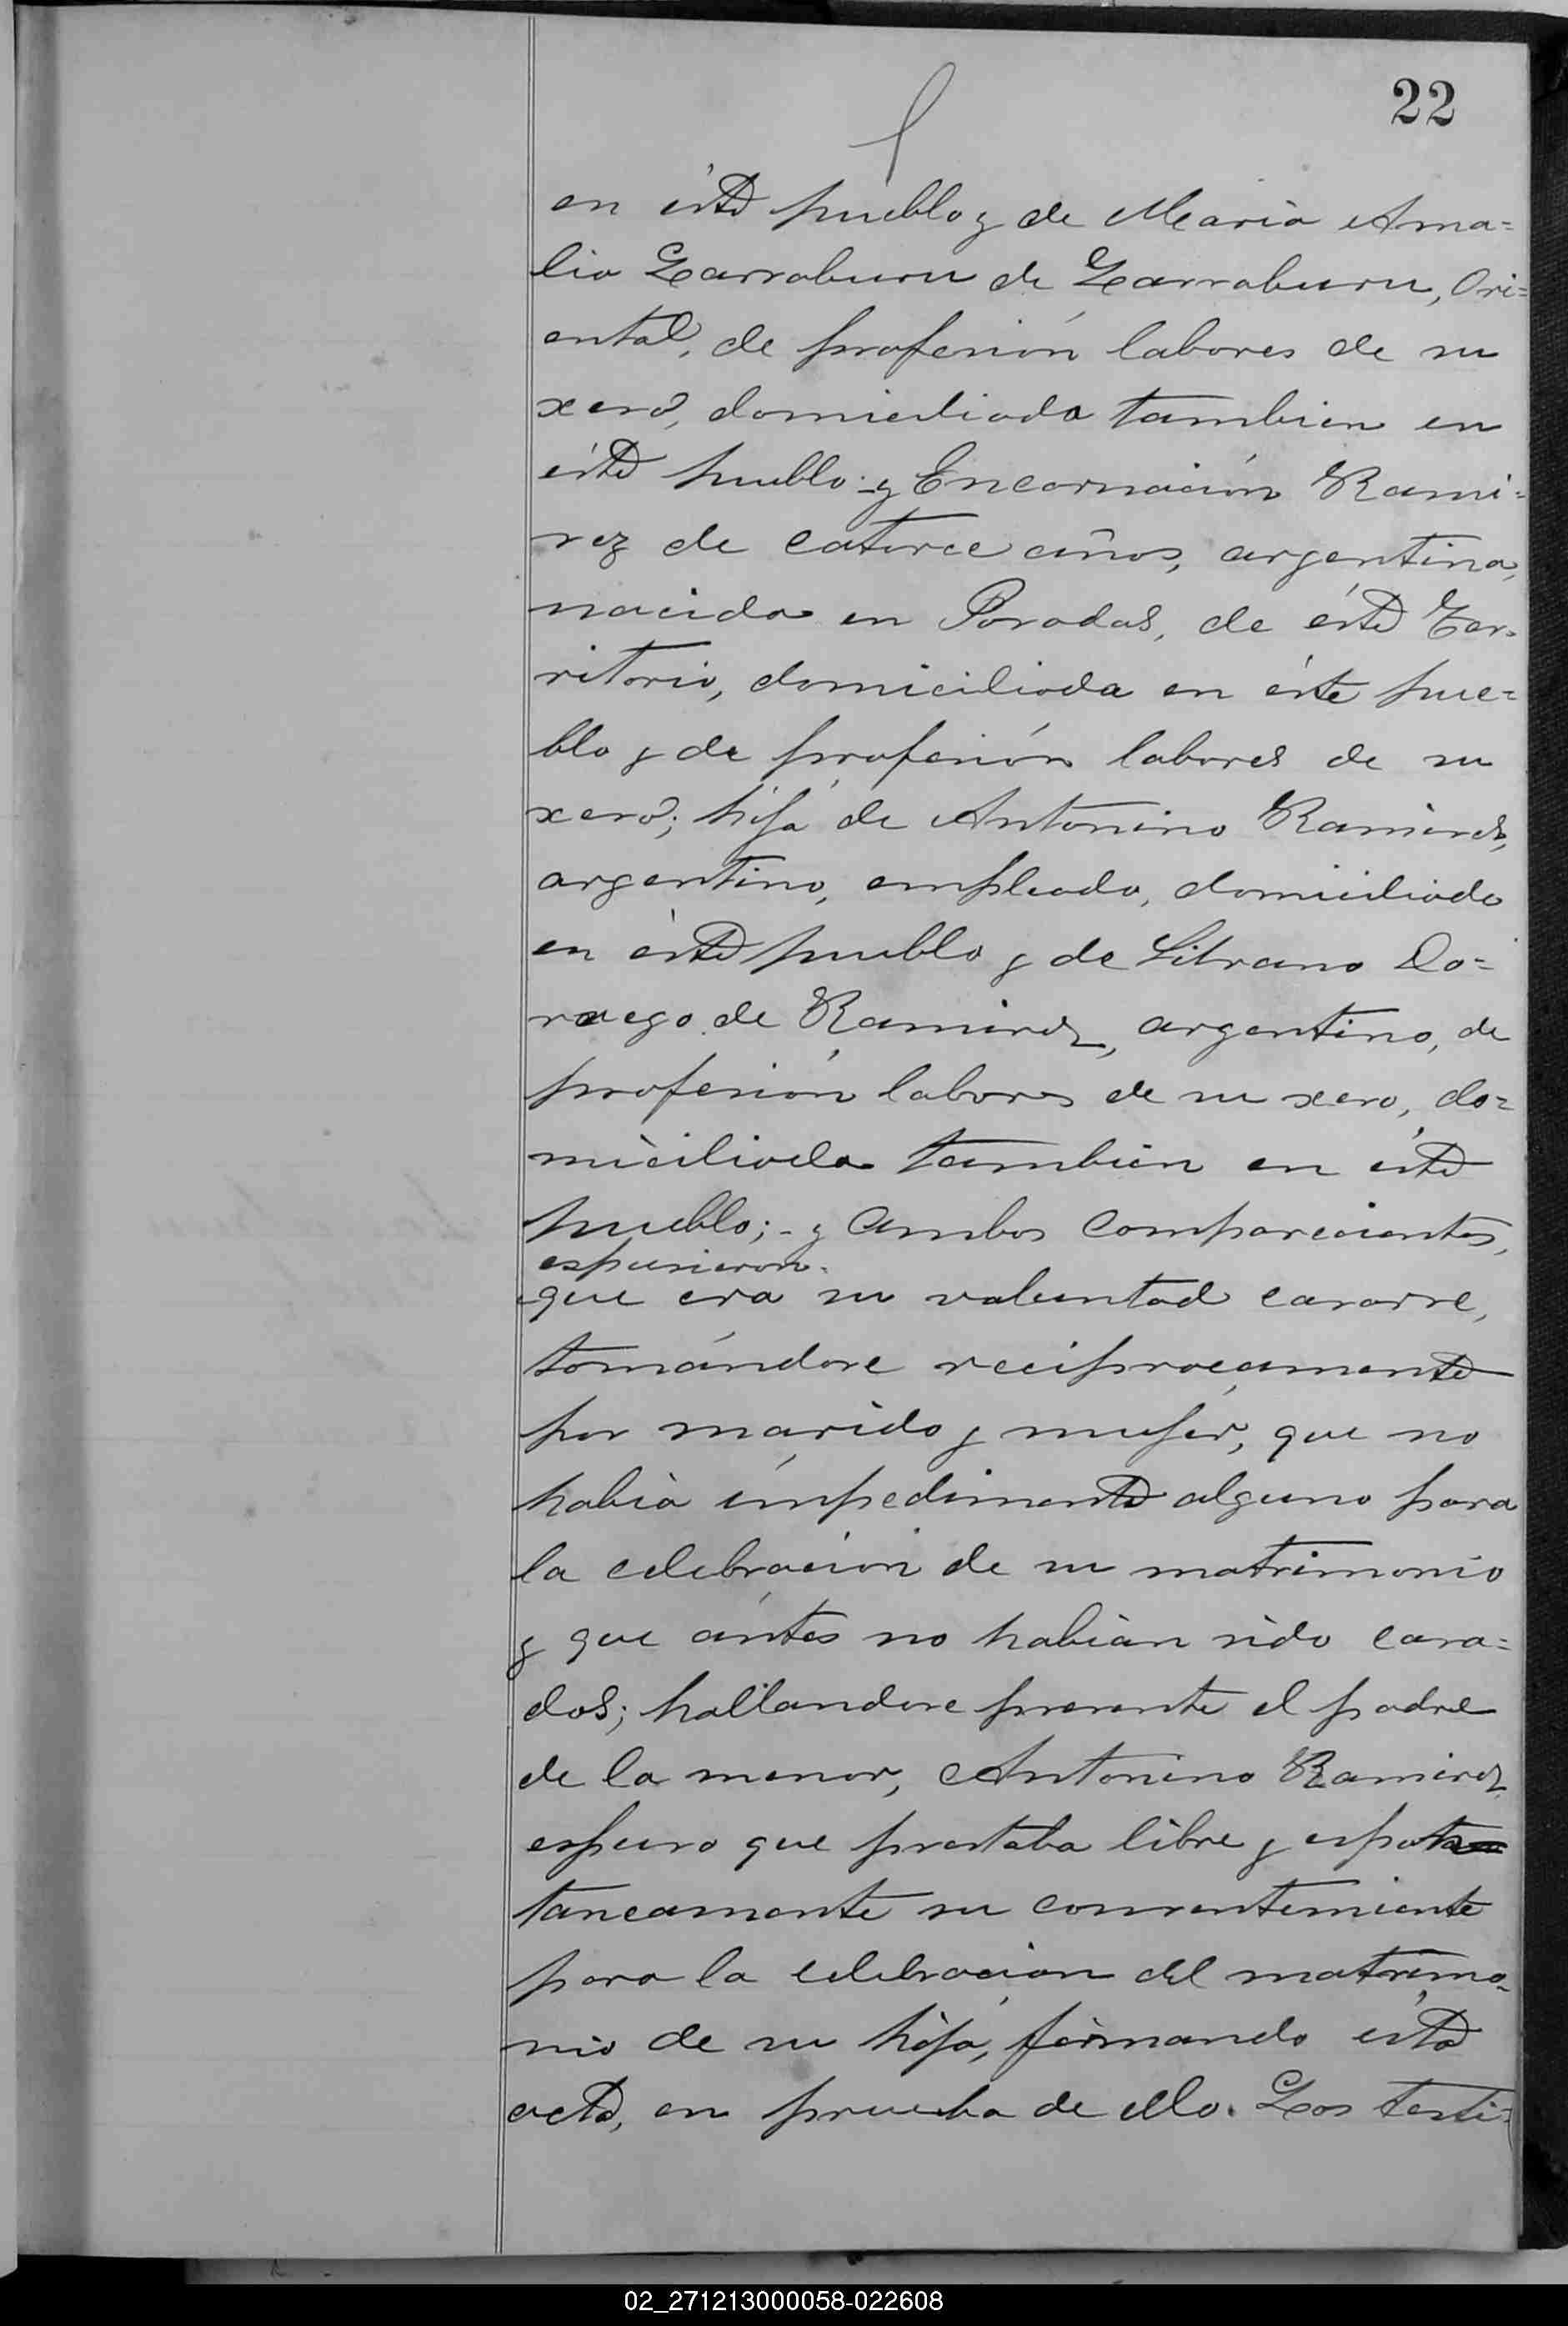 22
en éste pueblo y de Maria Ama=
lia Larraburu de Larraburu, Ori=
ental, de profesión labores de su
sexo, domiciliada tambien en
éste pueblo; y Encarnación Rami=
rez de catorce años, argentina,
nacida en Posadas, de éste Ter-
ritorio, domiciliada en éste pue=
blo y de profesión labores de su
sexo; hija de Antonino Ramirez,
argentino, empleado, domiciliado
en éste pueblo y de Do=
rrego de Ramirez, argentina, de
profesión labores de su sexo, do=
miciliada tambien en éste
pueblo; - y ambos comparecientes,
espusieron:
que era su voluntad casarse,
tomándose reciprocamente
por marido y mujer, que no
había impedimento alguno para
la celebración de su matrimonio
y que ántes no habian sido casa=
dos; hallandose presente el padre
de la menor, Antonino Ramirez
espuso que prestaba libre y
taneamente su consentimiento
para la celebracion del matrimo-
nio de su hija, firmando esta
acta, en prueba de ello. Los testi=
02_271213000058-022608